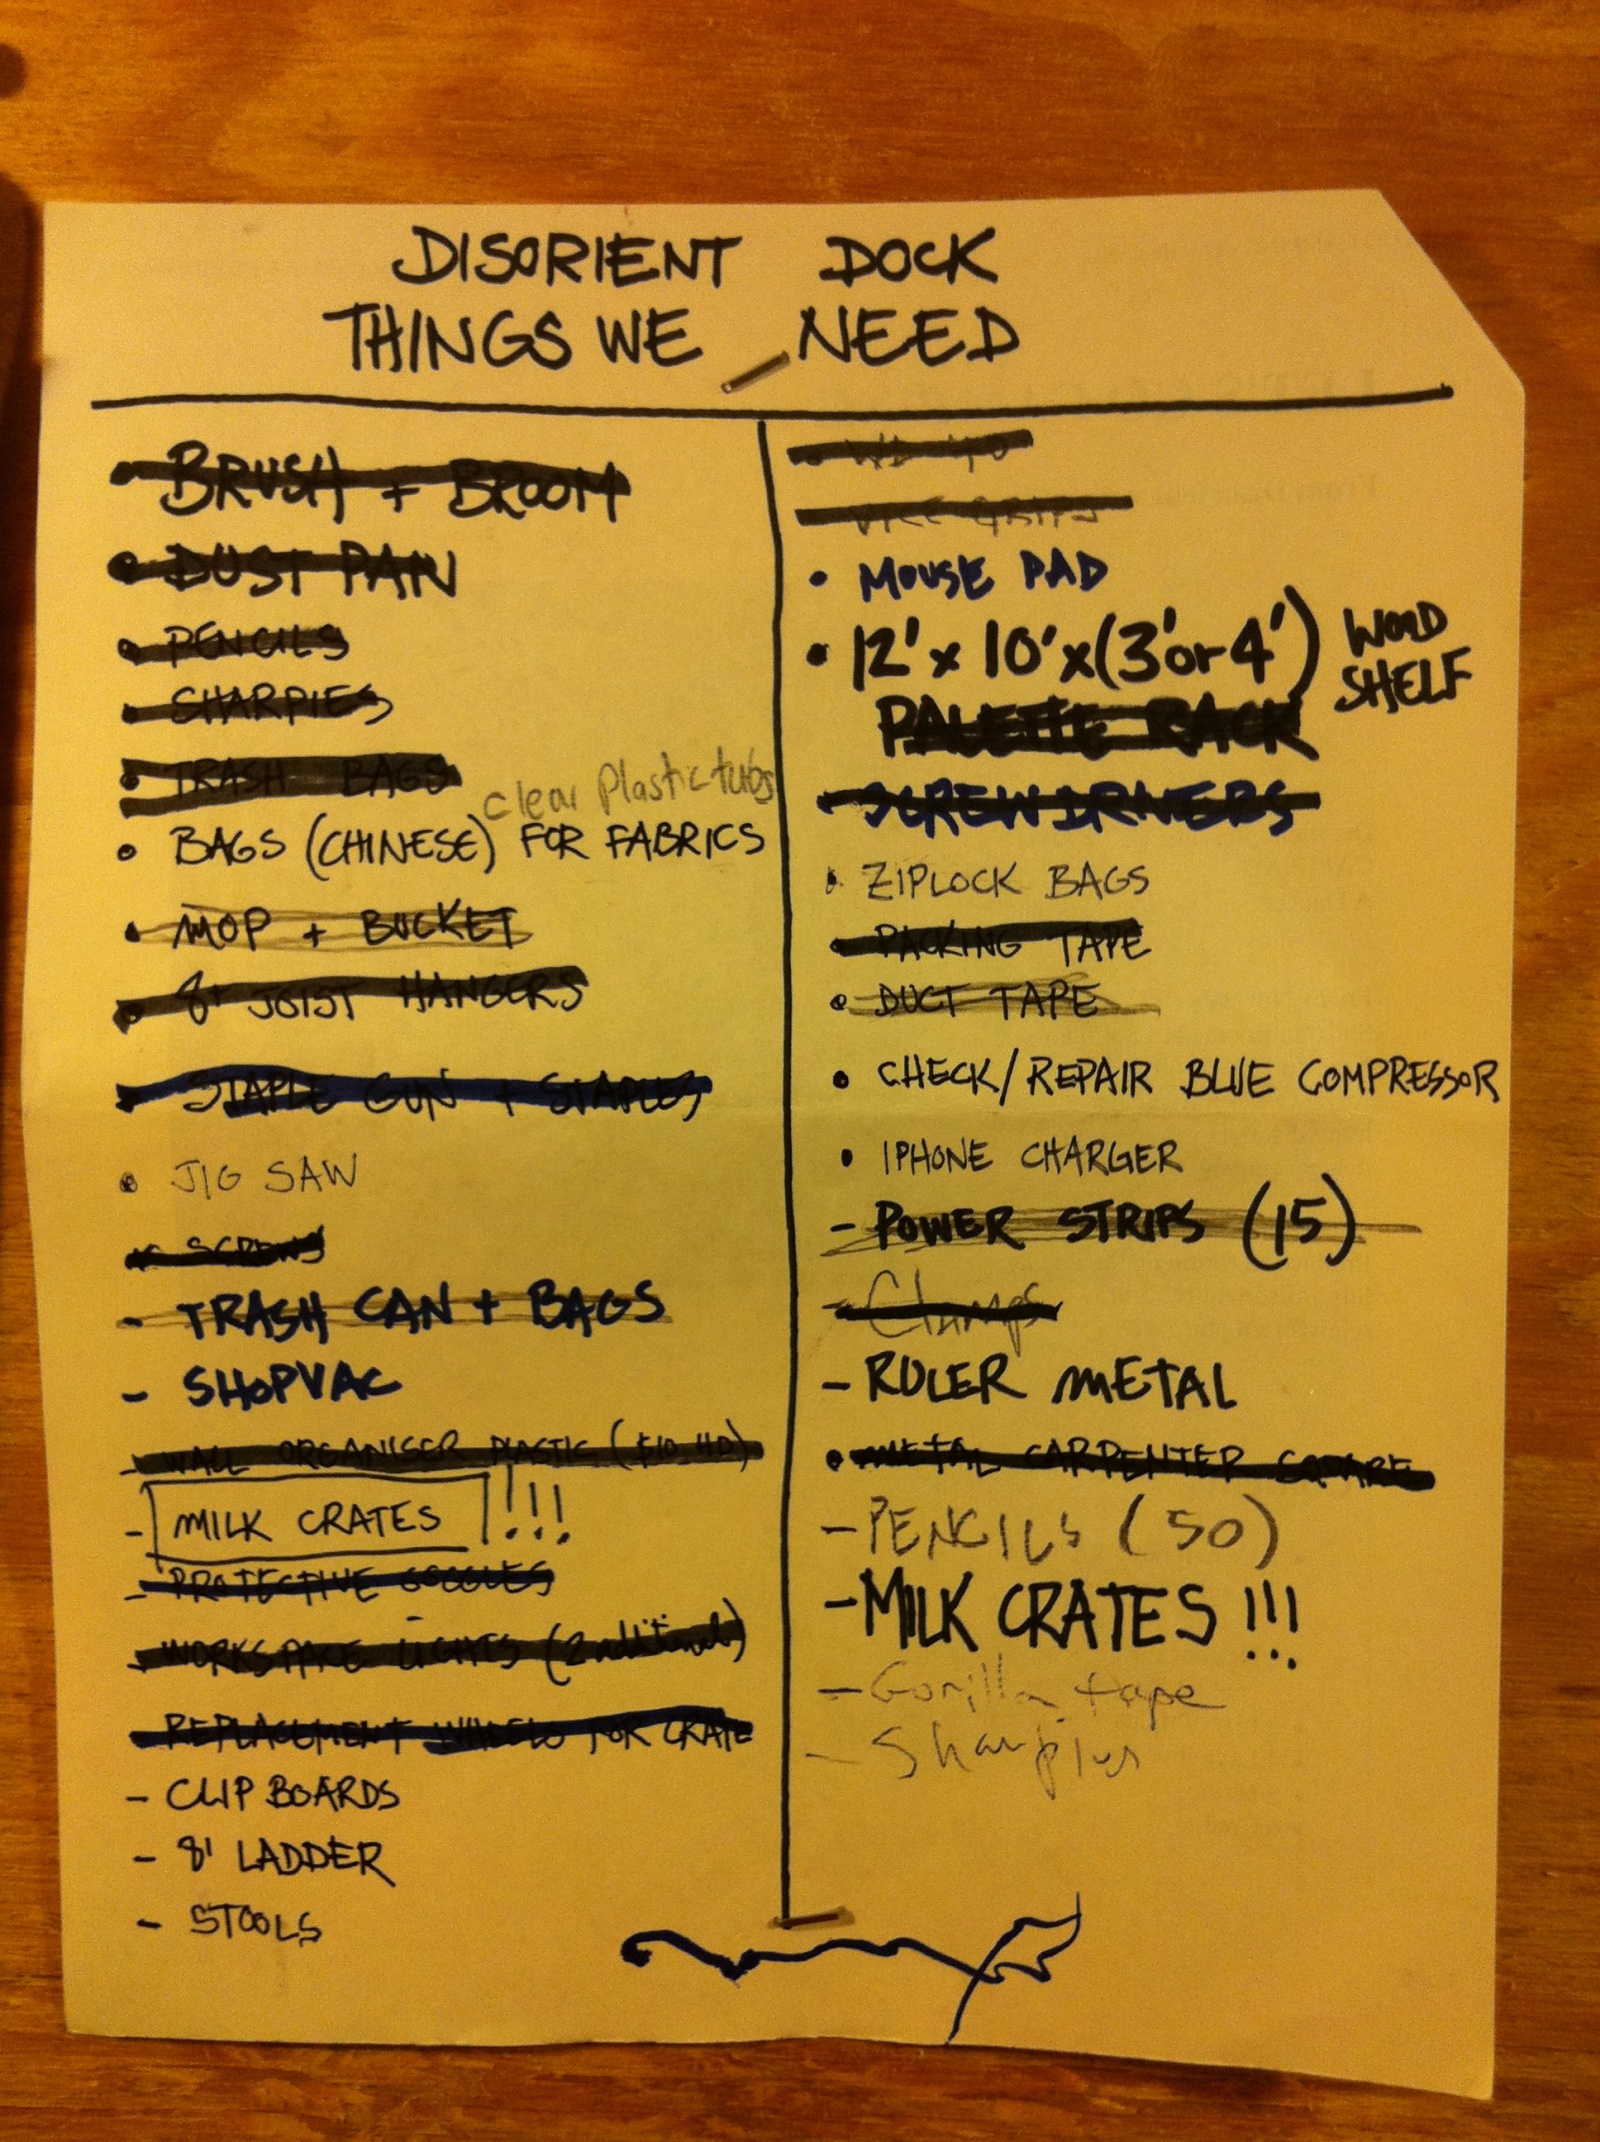 DISORIENT DOCK
THINGS WE NEED
• BRUSH + BROOM
• DUST PAN
• PENCILS
• SHARPIES
• TRASH BAGS
clear Plastic tubs
• BAGS (CHINESE) FOR FABRICS
• MOP + BUCKET
• 8' JOIST HANGERS
• STAPLE GUN + STAPLES
• JIG SAW
• SCREWS
- TRASH CAN + BAGS
- SHOPVAC
- WALL ORGANISER PLASTIC ($10 HD)
- MILK CRATES !!!
- PROTECTIVE GOGGLES
- WORKSPACE LIGHTS (2 additional)
- REPLACEMENT WHEELS FOR CRATE
- CLIP BOARDS
- 8' LADDER
- STOOLS
• WD 40
• VICE GRIPS
• MOUSE PAD
• 12' x 10' x (3' or 4') WOOD
SHELF
PALETTE RACK
• SCREWDRIVERS
• ZIPLOCK BAGS
• PACKING TAPE
• DUCT TAPE
• CHECK/REPAIR BLUE COMPRESSOR
• IPHONE CHARGER
- POWER STRIPS (15)
- Clamps
- RULER METAL
• METAL CARPENTER SQUARE
- PENCILS (50)
- MILK CRATES !!!
- Gorilla tape
- Sharpies